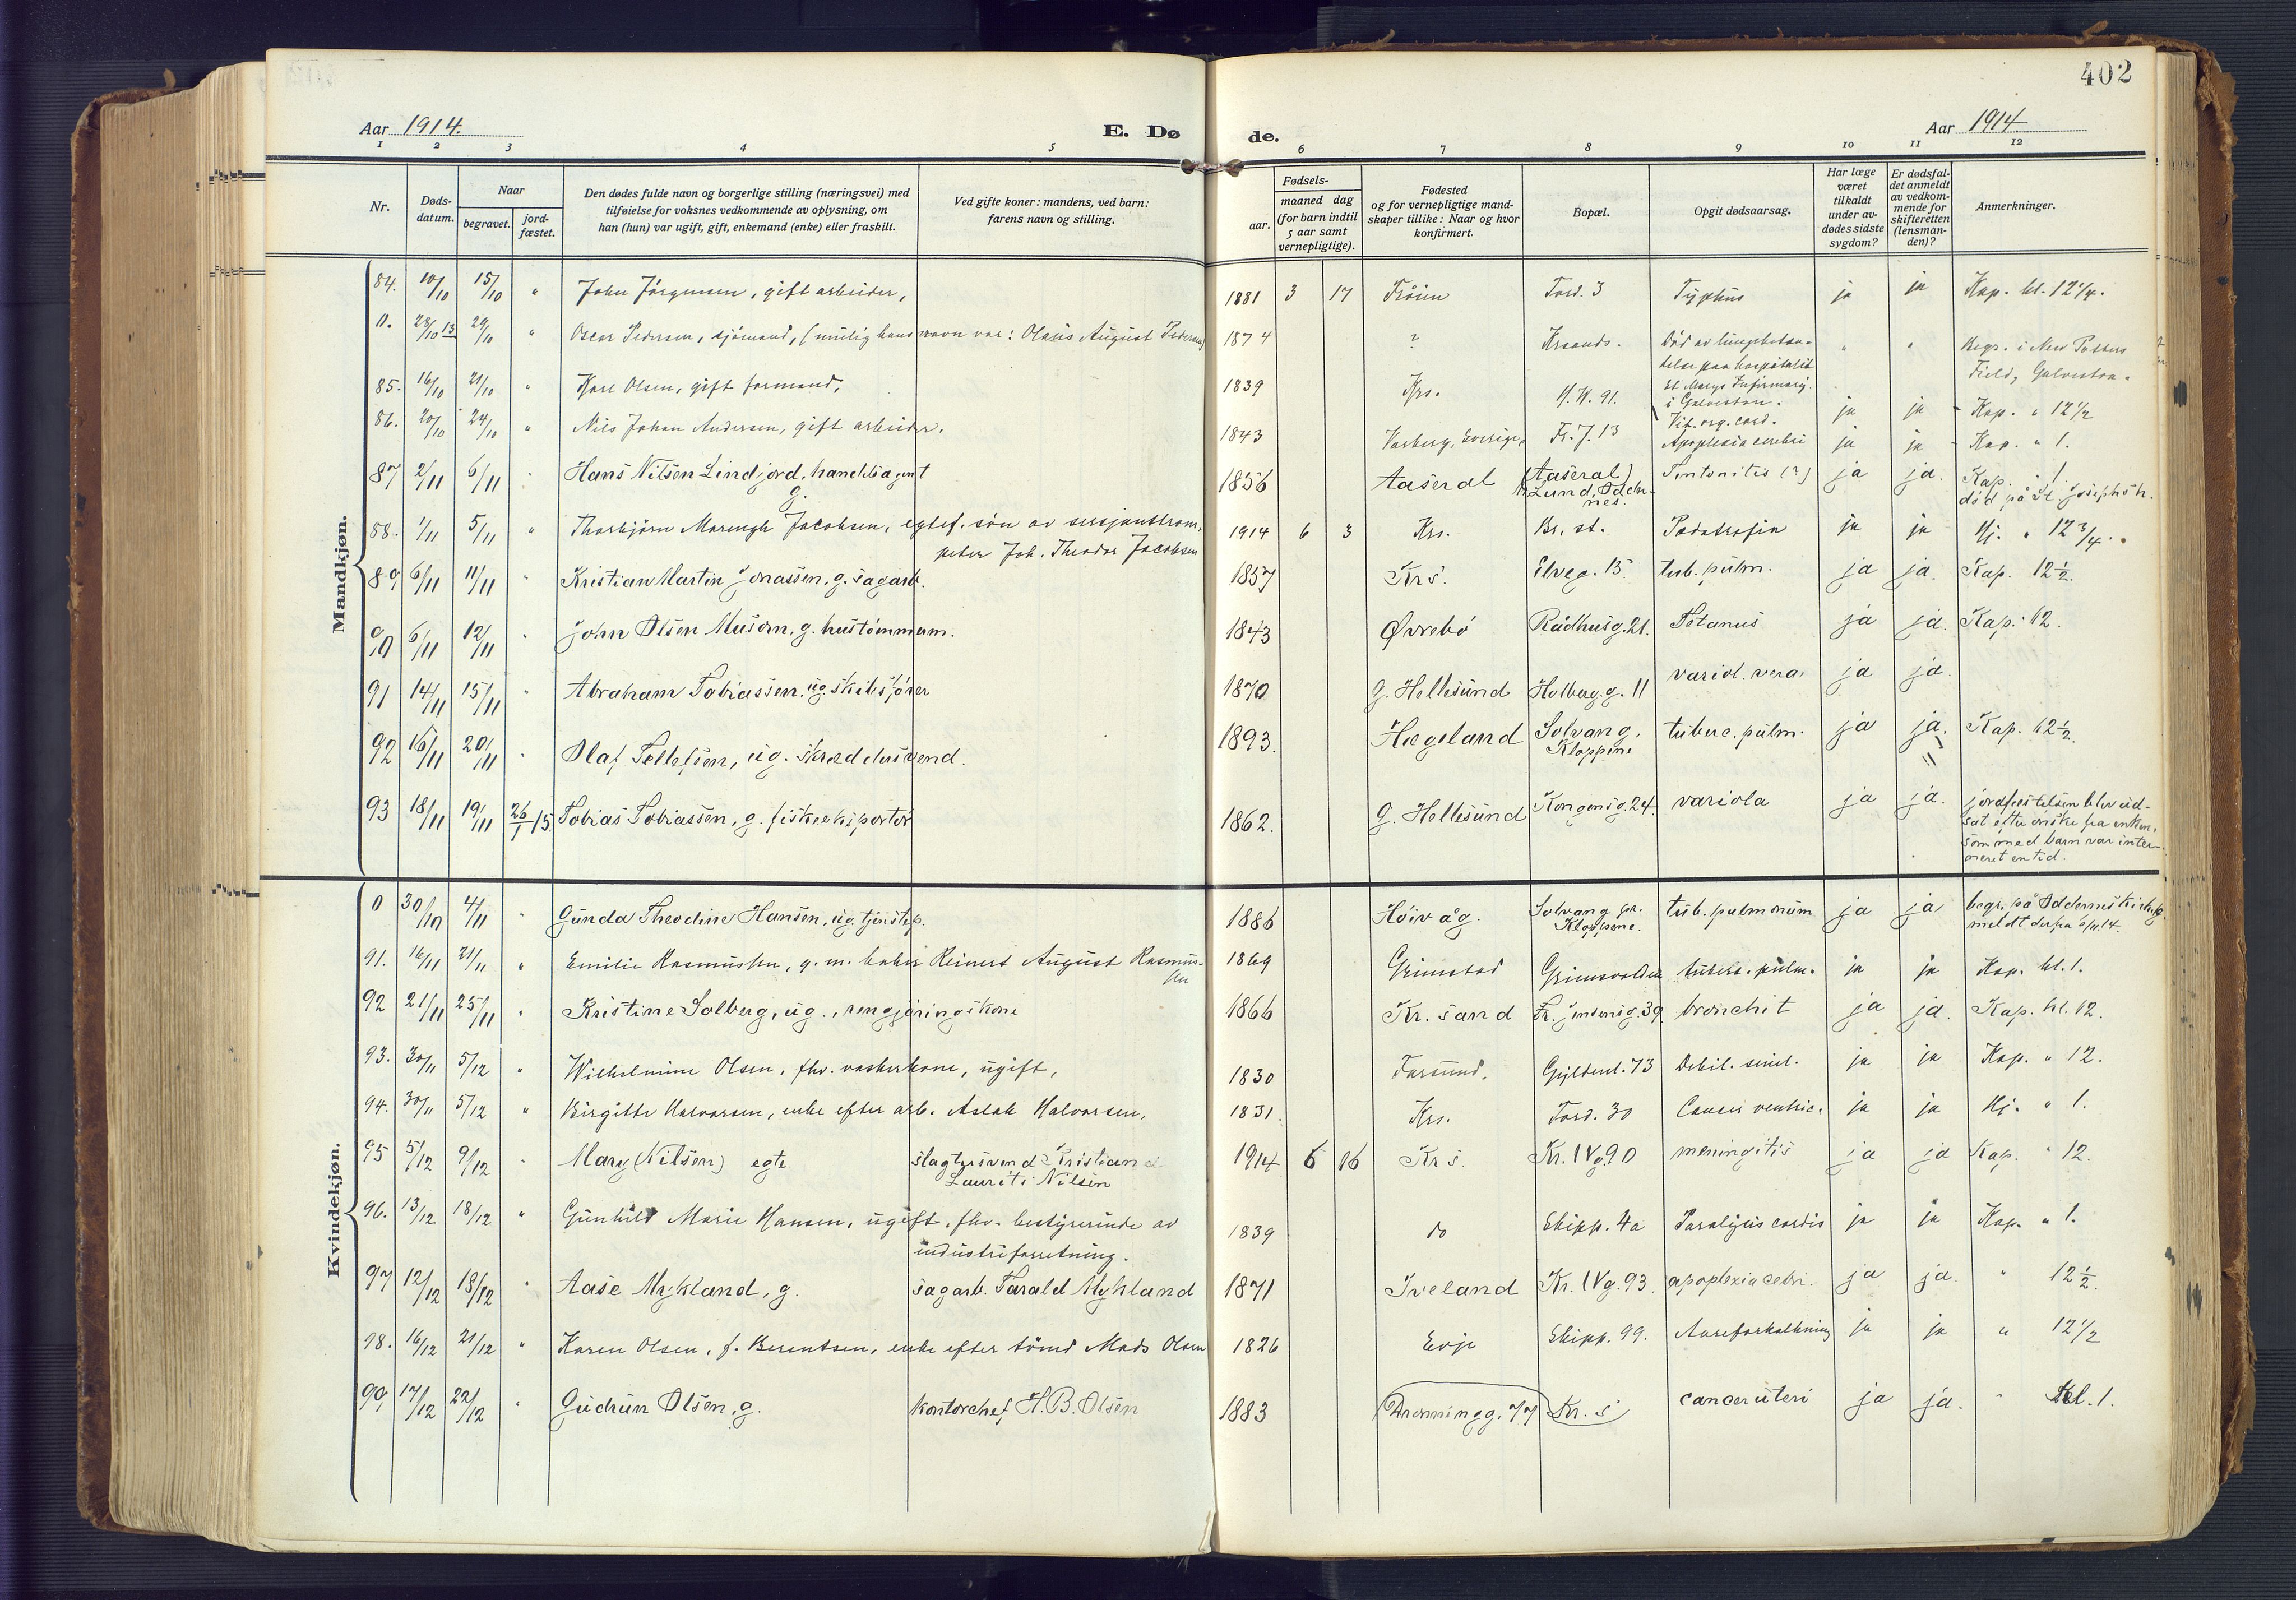 402
Aar 1914. E. Dø de. Aar 1914
1 2 3 4 5 6 7 8 9 10 11 12
Nr.
Døds-
datum.
Naar
begravet.
jord-
fæstet.
Den dødes fulde navn og borgerlige stilling (næringsvei) med
tilføielse for voksnes vedkommende av oplysning, om
han (hun) var ugift, gift, enkemand (enke) eller fraskilt.
Ved gifte koner: mandens, ved barn:
farens navn og stilling.
Fødsels-
aar.
maaned dag
(for barn indtil
5 aar samt
vernepligtige).
Fødested
og for vernepligtige mand-
skaper tillike: Naar og hvor
konfirmert.
Bopæl.
Opgit dødsaarsag.
Har læge
været
tilkaldt
under av-
dødes sidste
sygdom?
Er dødsfal-
det anmeldt
av vedkom-
mende for
skifteretten
(lensman-
den)?
Anmerkninger.
Mandkjøn.
84. 10/10 15/10 " John Jörgensen, gift arbeider, 1881 3 17 Tord. 3 Typhus ja ja Kap. kl. 12 1/4.
0. 28/10 13 29/10 " Oscar Pedersen, sjömand, (mulig hans navn var: Olaus August Pedersen) 1874 ? Krsands. Död av lungebetæn-
delse paa hospitalet
St Marys Infirmary
i Galveston. " " Begr. i New Potters
Field, Galveston.
85. 16/10 21/10 " Karl Olsen, gift formand, 1839 Krs. H.W. 91. Vit. org. cord. ja ja Kap. " 12 1/2
86. 20/10 24/10 " Nils Johan Andersen, gift arbeider. 1843 Varberg, Sverige, Fr. J. 13 Apoplexia cerebri ja ja Kap. " 1.
87 2/11 6/11 Hans Nilsen Lindjord, handelsagent
g. 1856 Aaseral (Aaseral)
Lund, Odder-
nes. (?) ja ja. Kap. " 1
död på St. Josephs h.
88. 1/11 5/11 " Thorbjörn Jacobsen, egtef. sön av sersjanttrom-
peter Joh. Theodor Jacobsen 1914 6 3 Krs. Br. st. Pedatrofia ja ja Hj. " 12 3/4.
89 6/11 11/11 " Kristian Martin Jonassen, g. sagarb. 1857 Krs. Elveg. 15. tub. pulm. ja ja. Kap. 12 1/2.
90 6/11 12/11 " John Olsen Musom, g. hustömmerm. 1843 Øvrebö Rådhusg. 21. Tetanus ja ja. Kap. 12.
91 14/11 15/11 " Abraham Tobiassen, ug. skibsförer 1870 G. Hellesund Holberg. g. 11 variol. vera ja ja.
92 16/11 20/11 " Olaf Tellefsen, ug. skræddersvend. 1893. Hægeland Solvang,
Kloppene tuberc. pulm. ja ja. Kap. 12 1/2.
93 18/11 19/11 26/1 15. Tobias Tobiassen, g. fiskeeksportör 1862. G. Hellesund Kongensg. 24. variola ja ja. jordfæstelsen blev ud-
sat efter önske fra enken,
som med barn var inter-
neret en tid.
Kvindekjøn.
0 30/10 4/11 " Gunda Theodine Hansen, ug. tjenstep. 1886 Höivåg. Solvang pr.
Kloppene. tub. pulmonum ja ja, begr. på Oddernes kirkeg.
meldt derfra 6/11.14.
91. 16/11 21/11 " Emilie Rasmussen, g. m. baker Reinert August Rasmus-
sen 1869 Grimstad tuberc. pulm. ja ja Kap. kl. 1.
92 21/11 25/11 " Kristine Solberg, ug., rengjöringskone 1866 Kr. sand Fr. Jensensg. 39 bronchit ja ja. Kap. kl. 12.
93. 30/11 5/12 " Wilhelmine Olsen, fhv. vaskerkone, ugift, 1830 Farsund, Gyldenl. 73 Debil. senil. ja ja Kap. " 12.
94. 30/11 5/12 " Birgitte Halvorsen, enke efter arb. Aslak Halvorsen, 1831. Krs. Tord. 30 Cancer ventric. ja ja Hj. " 1.
95 5/12 9/12 " Mary (Nilsen) egte slagtersvend Kristian
Laurits Nilsen 1914 6 16 Krs. Kr. IV g. 90 meningitis ja ja Kap. " 12.
96. 13/12 18/12 " Gunhild Marie Hansen, ugift, fhv. bestyrerinde av
industriforretning. 1839 do Skipp. 4a Paralysis cordis ja ja Kap. " 1.
97 12/12 18/12 " Aase Mykland, g. sagarb. Tarald Mykland 1871 Iveland Kr. IV g. 93. apoplexia cebri. ja ja. " 12 1/2.
98. 16/12 21/12 " Karen Olsen, f. Berentsen, enke efter tömd Mads Olsen 1826 Evje Skipp. 99. Aareforkalkning ja ja " 12 1/2
99 17/12 22/12 " Gudrun Olsen, g. kontorchef H. B. Olsen 1883 Dronningg. 77 Kr. S cancer uteri ja ja. " Kl. 1.